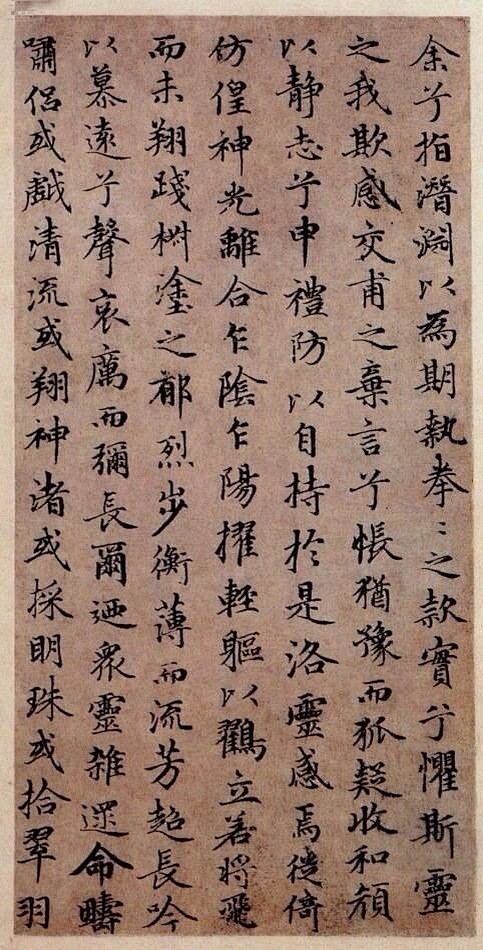 余兮指潛淵以為期執拳〻之款實兮懼斯靈
之我欺感交甫之棄言兮悵猶豫而狐疑收和顏
以静志兮申禮防以自持於是洛靈感焉徙倚
仿偟神光離合乍陰乍陽擢輕軀以鶴立若將飛
而未翔踐椒塗之郁烈步衡薄而流芳超長吟
以慕遠兮聲哀厲而彌長爾迺衆靈雜遝命疇
嘯侣或戲清流或翔神渚或採明珠或拾翠羽